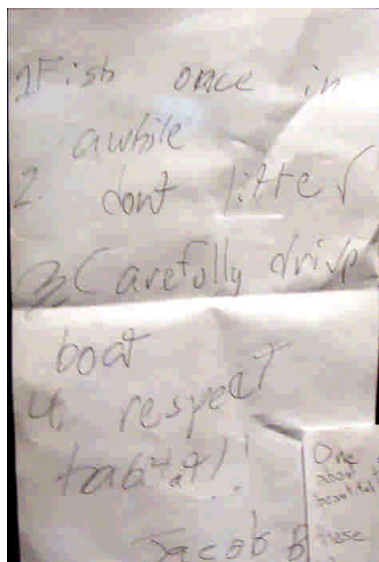 1Fish once in
awhile
2. dont litter
3Carefully drive
boat
4. respect
habitat!
Jacob B
One
about
beautiful
these